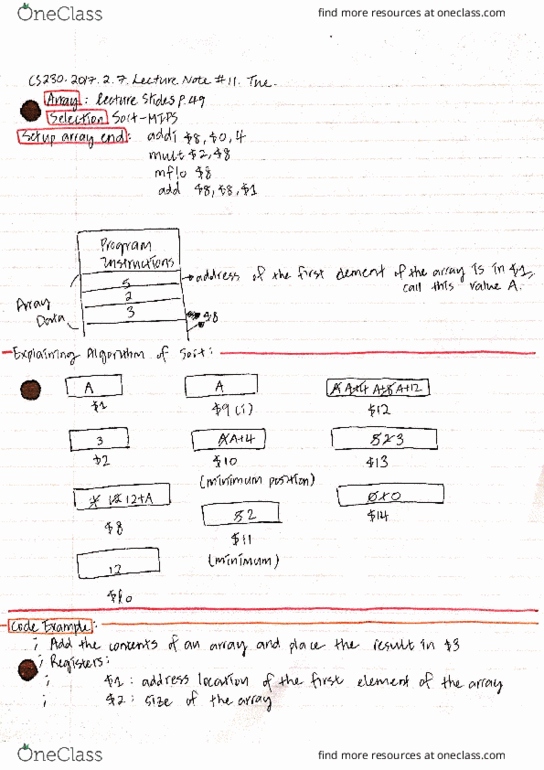 OneClass
find more resources at oneclass.com
CS230. 2017. 2. 7. Lecture Note #11. Tue.
Array : Lecture Slides P.49
Selection Sort-MIPS
Setup array end: addi $8, $0, 4
mult $2, $8
mflo $8
add $8, $8, $1
Program
Instructions
5
2
3
Array
Data
address of the first element of the array is in $1,
call this value A.
$8
Explaining Algorithm of Sort:
A
$1
A
$9 (i)
A A+4 A+8 A+12
$12
3
$2
A A+4
$10
(minimum position)
5 2 3
$13
12+A
$8
5 2
$11
(minimum)
0 x 0
$14
12
Code Example:
; Add the contents of an array and place the result in $3
; Registers:
; $1 : address location of the first element of the array
; $2 : size of the array
OneClass
find more resources at oneclass.com